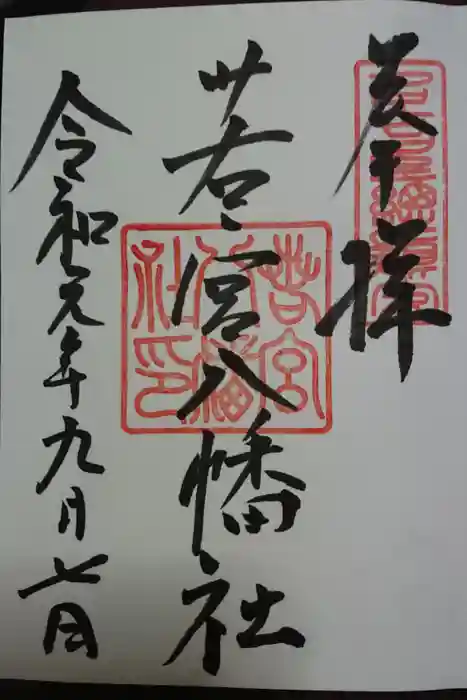 奉拝
若宮八幡社
令和元年九月七日
若宮八幡社印